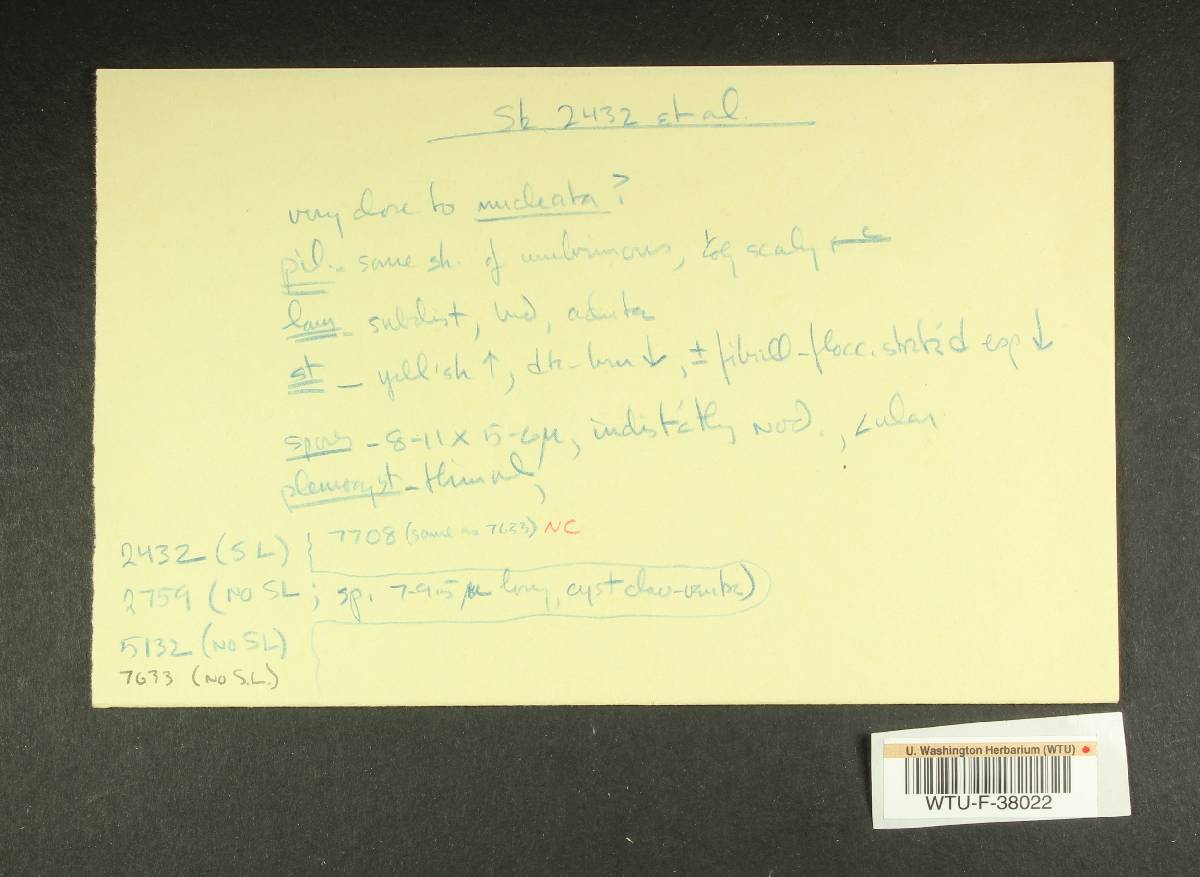 St. 2432 et al.
very close to nucleata?
pil. - same sh. of umbrinous, scaly
lam - subdist, md, adnate
st - yell'sh ↑, dk-brn ↓, ± fibrill-flocc. striated esp ↓
spores - 8-11 x 5-6µ, indist'ctly nod., <ular
pleurocyst - thinwal,
7708 (same as 7633) NC
2432 (SL) }
2759 (NO SL; sp. 7-9.5 µ long, cyst clav-ventr)
5132 (NO SL)
7633 (NO S.L.)
U. Washington Herbarium (WTU)
WTU-F-38022